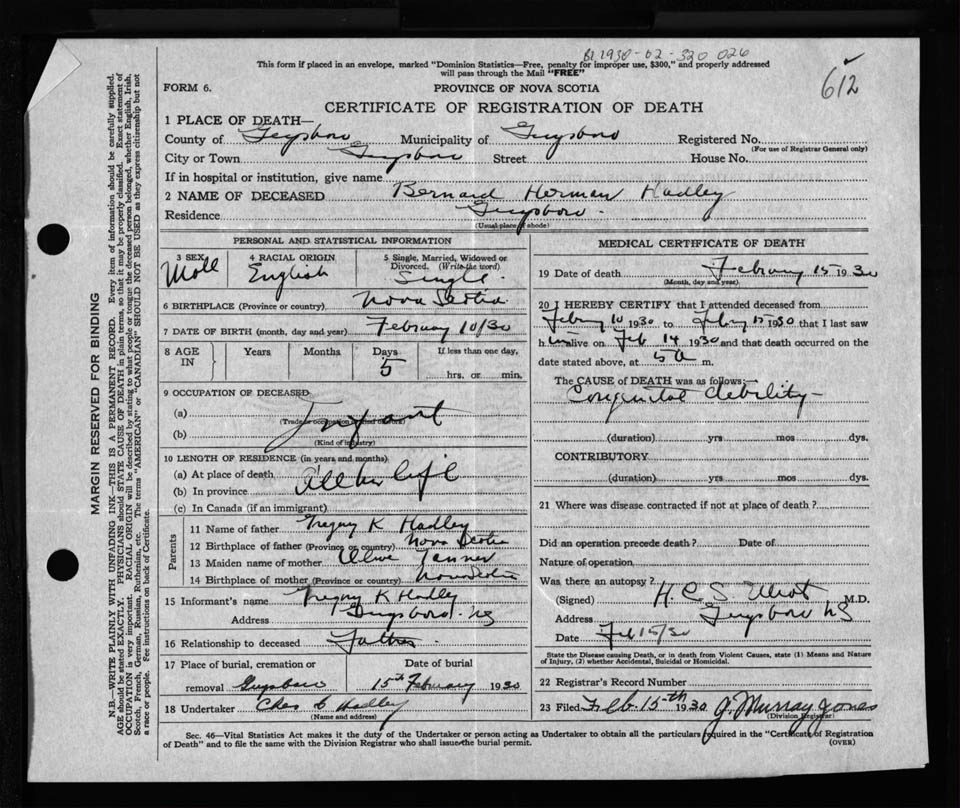 B1930-02-320 026
This form if placed in an envelope, marked "Dominion Statistics—Free, penalty for improper use, $300," and properly addressed
will pass through the Mail "FREE"
612
FORM 6.
PROVINCE OF NOVA SCOTIA
CERTIFICATE OF REGISTRATION OF DEATH
1 PLACE OF DEATH—
County of Guysboro Municipality of Guysboro Registered No.
(For use of Registrar General only)
City or Town Guysboro Street House No.
If in hospital or institution, give name
2 NAME OF DECEASED Bernard Herman Hadley
Residence Guysboro.
(Usual place of abode)
PERSONAL AND STATISTICAL INFORMATION
3 SEX Male
4 RACIAL ORIGIN English
5 Single, Married, Widowed or
Divorced. (Write the word)
Single.
6 BIRTHPLACE (Province or country) Nova Scotia
7 DATE OF BIRTH (month, day and year) February 10/30
8 AGE IN Years Months Days 5 If less than one day,
hrs. or min.
9 OCCUPATION OF DECEASED
(a) Infant
(Trade or occupation or kind of work)
(b)
(Kind of industry)
10 LENGTH OF RESIDENCE (in years and months)
(a) At place of death
(b) In province All his life
(c) In Canada (if an immigrant)
Parents
11 Name of father Gregory K Hadley
12 Birthplace of father (Province or country) Nova Scotia
13 Maiden name of mother Olive Tanner
14 Birthplace of mother (Province or country) Nova Scotia
15 Informant's name Gregory K Hadley
Address Guysboro. NS
16 Relationship to deceased Father.
17 Place of burial, cremation or Date of burial
removal Guysboro 15th February 1930
18 Undertaker Chas C Hadley
(Name and address)
MEDICAL CERTIFICATE OF DEATH
19 Date of death February 15 1930
(Month, day and year)
20 I HEREBY CERTIFY that I attended deceased from
Febry 10 1930 to Feby 15 1930 that I last saw
him alive on Feb 14 1930 and that death occurred on the
date stated above, at 5 a m.
The CAUSE of DEATH was as follows:
Congenital debility—
(duration) yrs mos dys.
CONTRIBUTORY
(duration) yrs. mos. dys.
21 Where was disease contracted if not at place of death?
Did an operation precede death? Date of
Nature of operation
Was there an autopsy?
(Signed) H. C. S. Elliot M.D.
Address Guysboro NS
Date Feb 15/30
State the Disease causing Death, or in death from Violent Causes, state (1) Means and Nature
of Injury, (2) whether Accidental, Suicidal or Homicidal.
22 Registrar's Record Number
23 Filed Feb. 15th 1930 J. Murray Jones
(Division Registrar)
Sec. 46—Vital Statistics Act makes it the duty of the Undertaker or person acting as Undertaker to obtain all the particulars required in the "Certificate of Registration
of Death" and to file the same with the Division Registrar who shall issue the burial permit.
(OVER)
MARGIN RESERVED FOR BINDING
N.B.—WRITE PLAINLY WITH UNFADING INK—THIS IS A PERMANENT RECORD. Every item of information should be carefully supplied.
AGE should be stated EXACTLY. PHYSICIANS should STATE CAUSE OF DEATH in plain terms, so that it may be properly classified. Exact statement of
OCCUPATION is very important. RACIAL ORIGIN will be described by stating to what people or tongue the deceased person belonged, whether English, Irish,
Scotch, French, German, Russian, Ruthenian, etc. The terms "AMERICAN" or "CANADIAN" SHOULD NOT BE USED as they express citizenship but not
a race or people. Fee instructions on back of Certificate.